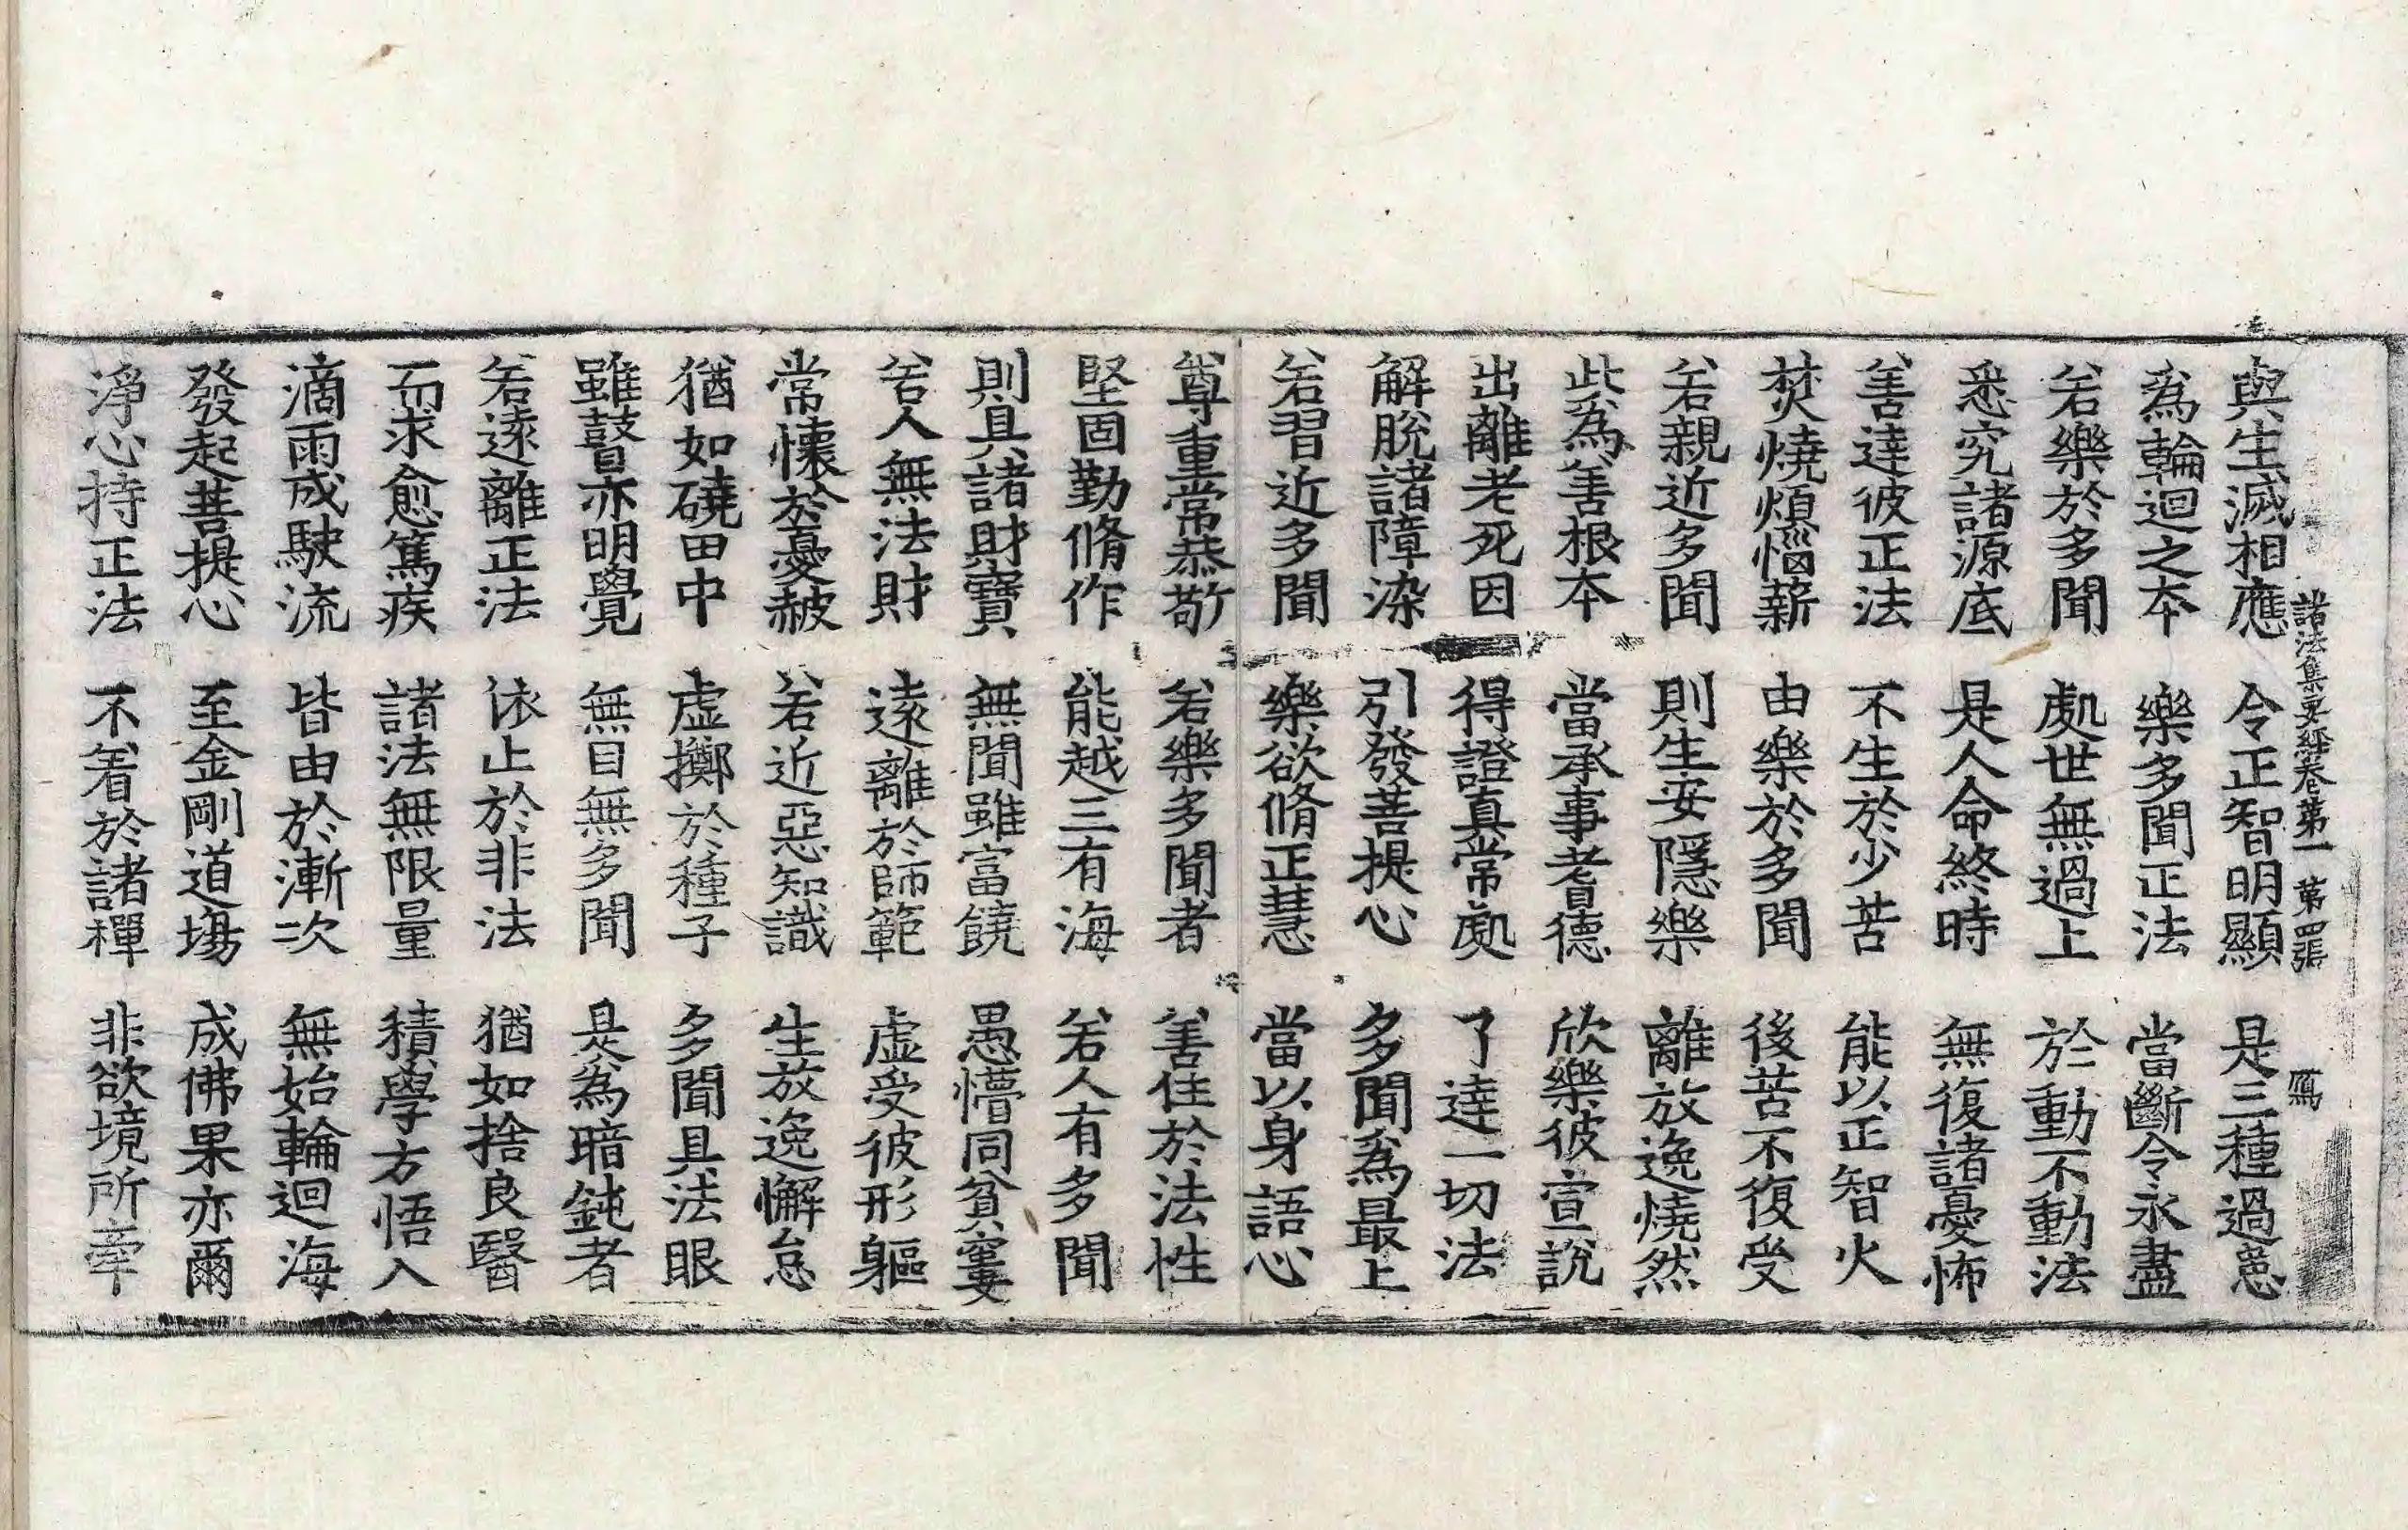 與生滅相應　令正智明顯　是三種過患
諸法集要經卷第一　第四張　鴈
為輪迴之本　樂多聞正法　當斷令永盡
若樂於多聞　處世無過上　於動不動法
悉究諸源底　是人命終時　無復諸憂怖
善達彼正法　不生於少苦　能以正智火
焚燒煩惱薪　由樂於多聞　後苦不復受
若親近多聞　則生安隱樂　離放逸燒然
此為善根本　當承事耆德　欣樂彼宣說
出離老死因　得證真常處　了達一切法
解脫諸障染　引發菩提心　多聞為最上
若習近多聞　樂欲脩正慧　當以身語心
尊重常恭敬　若樂多聞者　善住於法性
堅固勤脩作　能越三有海　若人有多聞
則具諸財寶　無聞雖富饒　愚懵同貧窶
若人無法財　遠離於師範　虛受彼形軀
常懷於憂赧　若近惡知識　生放逸懈怠
猶如磽田中　虛擲於種子　多聞具法眼
雖瞽亦明覺　無目無多聞　是為暗鈍者
若遠離正法　依止於非法　猶如捨良醫
而求愈篤疾　諸法無限量　積學方悟入
滴雨成駛流　皆由於漸次　無始輪迴海
發起菩提心　至金剛道場　成佛果亦爾
淨心持正法　不着於諸禪　非欲境所牽